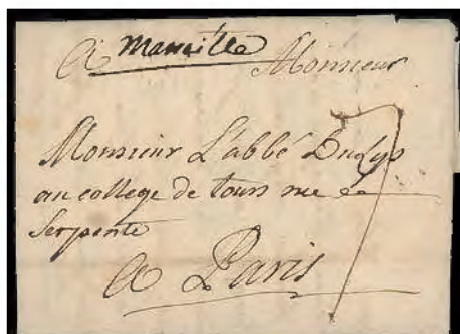 A Marseille Monsieur
Monsieur L'abbé Duclÿs
au college de tours rue
Serpente
A Paris
7